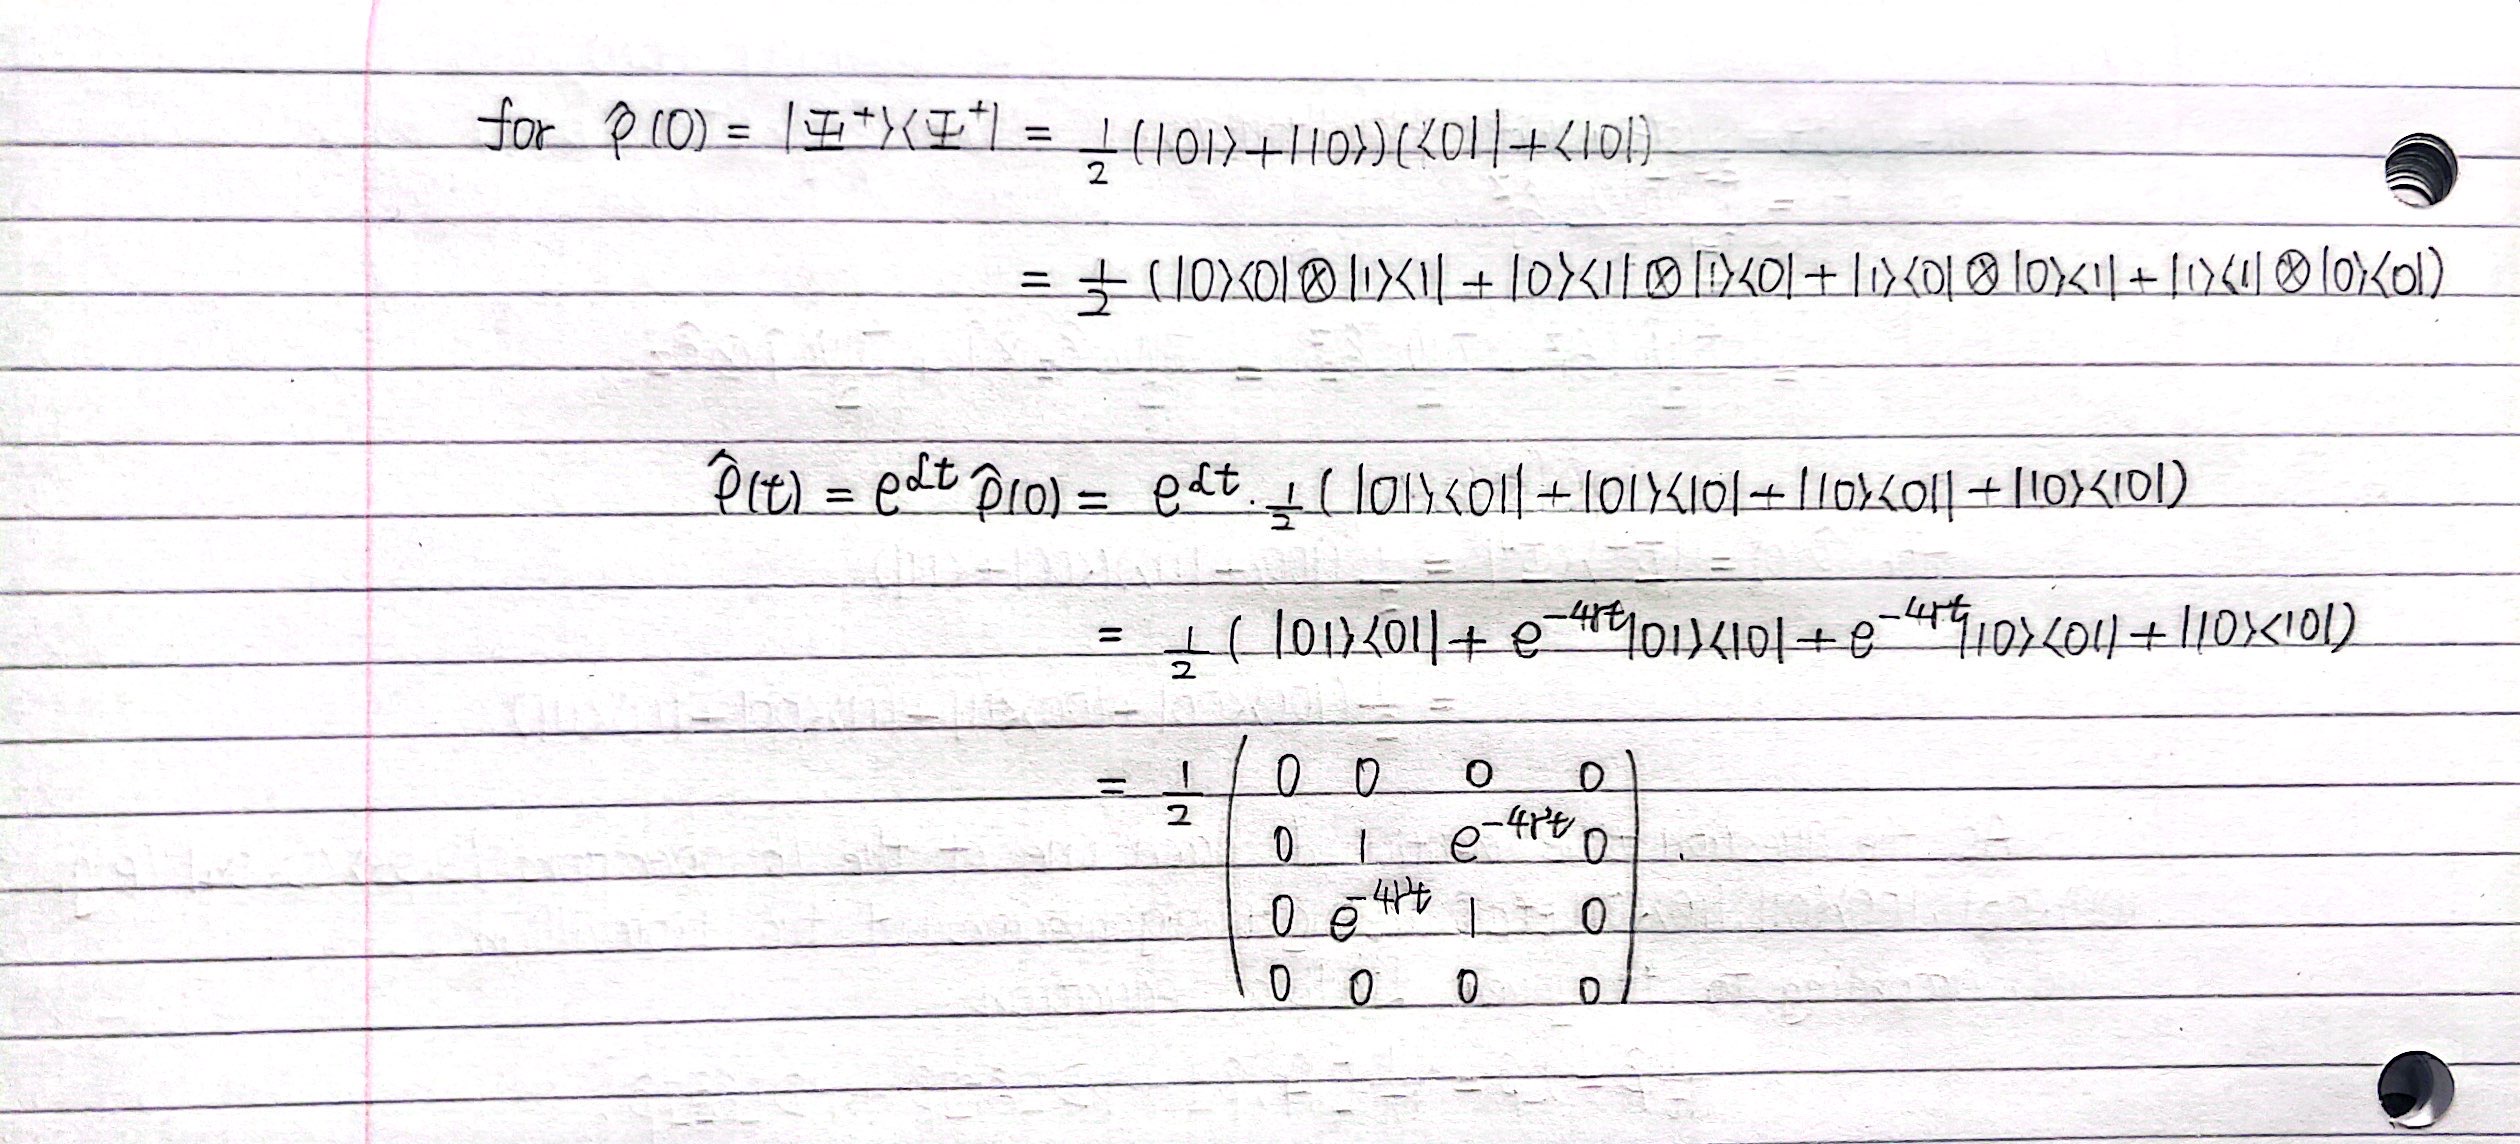 for ρ̂(0) = |Ψ⁺⟩⟨Ψ⁺| = 1/2 (|01⟩+|10⟩)(⟨01|+⟨10|)
= 1/2 (|0⟩⟨0|⊗|1⟩⟨1| + |0⟩⟨1|⊗|1⟩⟨0| + |1⟩⟨0|⊗|0⟩⟨1| + |1⟩⟨1|⊗|0⟩⟨0|)
ρ̂(t) = e^{ℒt} ρ̂(0) = e^{ℒt} · 1/2 ( |01⟩⟨01| + |01⟩⟨10| + |10⟩⟨01| + |10⟩⟨10|)
= 1/2 ( |01⟩⟨01| + e^{-4γt}|01⟩⟨10| + e^{-4γt}|10⟩⟨01| + |10⟩⟨10|)
= 1/2 ( 0 0 0 0
0 1 e^{-4γt} 0
0 e^{-4γt} 1 0
0 0 0 0 ) .